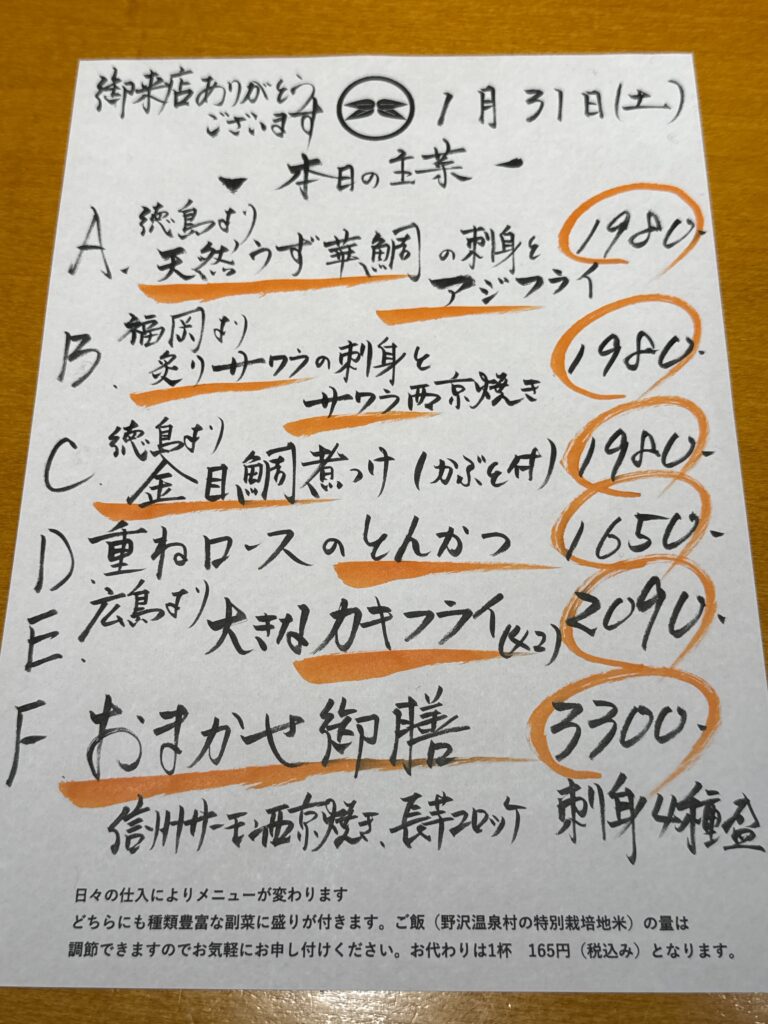 御来店ありがとう
ございます
1月31日(土)
本日の主菜
A. 徳島より
天然うず華鯛の刺身と
アジフライ
1980.
B. 福岡より
炙りサワラの刺身と
サワラ西京焼き
1980.
C 徳島より
金目鯛煮つけ(かぶと付)
1980.
D. 重ねロースのとんかつ
1650.
E. 広島より
大きなカキフライ(×2)
2090.
F おまかせ御膳
3300.
信州サーモン西京焼き、長芋コロッケ 刺身4種盛
日々の仕入によりメニューが変わります
どちらにも種類豊富な副菜に盛りが付きます。ご飯（野沢温泉村の特別栽培地米）の量は
調節できますのでお気軽にお申し付けください。お代わりは1杯　165円（税込み）となります。